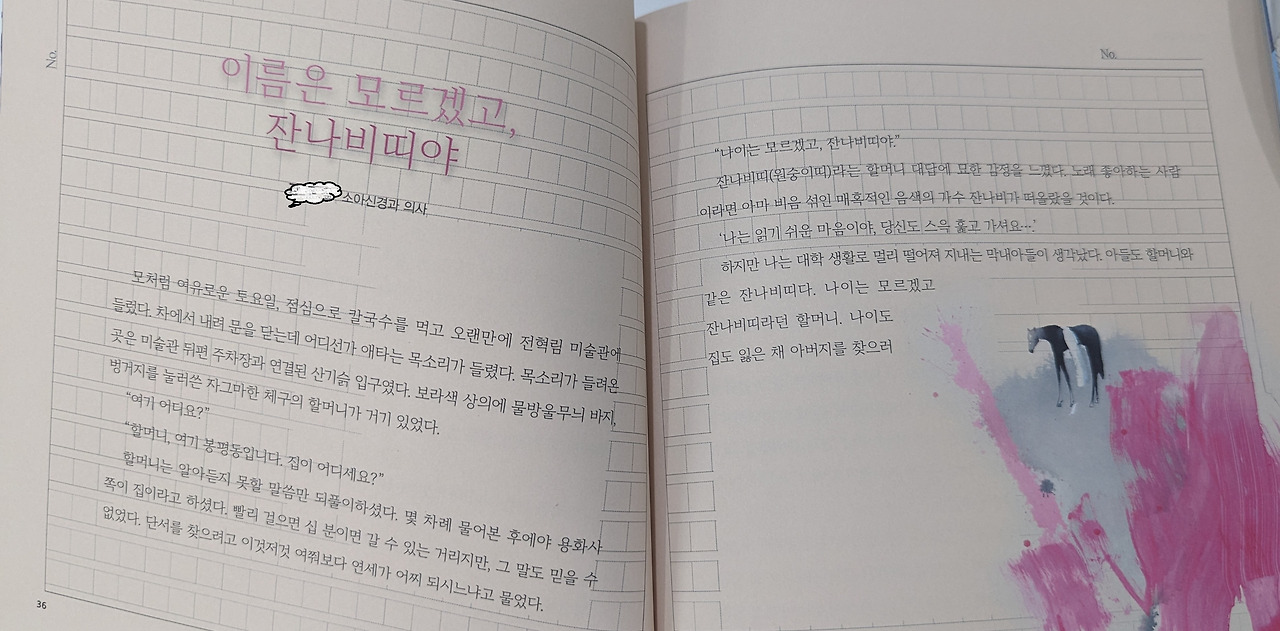 No.
이름은 모르겠고,
잔나비띠야
소아신경과 의사
모처럼 여유로운 토요일, 점심으로 칼국수를 먹고 오랜만에 전혁림 미술관에
들렀다. 차에서 내려 문을 닫는데 어디선가 애타는 목소리가 들렸다. 목소리가 들려온
곳은 미술관 뒤편 주차장과 연결된 산기슭 입구였다. 보라색 상의에 물방울무늬 바지,
벙거지를 눌러쓴 자그마한 체구의 할머니가 거기 있었다.
“여기 어디요?”
“할머니, 여기 봉평동입니다. 집이 어디세요?”
할머니는 알아듣지 못할 말씀만 되풀이하셨다. 몇 차례 물어본 후에야 용화사
쪽이 집이라고 하셨다. 빨리 걸으면 십 분이면 갈 수 있는 거리지만, 그 말도 믿을 수
없었다. 단서를 찾으려고 이것저것 여쭤보다 연세가 어찌 되시느냐고 물었다.
36
No.
“나이는 모르겠고, 잔나비띠야.”
잔나비띠(원숭이띠)라는 할머니 대답에 묘한 감정을 느꼈다. 노래 좋아하는 사람
이라면 아마 비음 섞인 매혹적인 음색의 가수 잔나비가 떠올랐을 것이다.
‘나는 읽기 쉬운 마음이야, 당신도 스윽 훑고 가셔요…’
하지만 나는 대학 생활로 멀리 떨어져 지내는 막내아들이 생각났다. 아들도 할머니와
같은 잔나비띠다. 나이는 모르겠고
잔나비띠라던 할머니. 나이도
집도 잃은 채 아버지를 찾으러